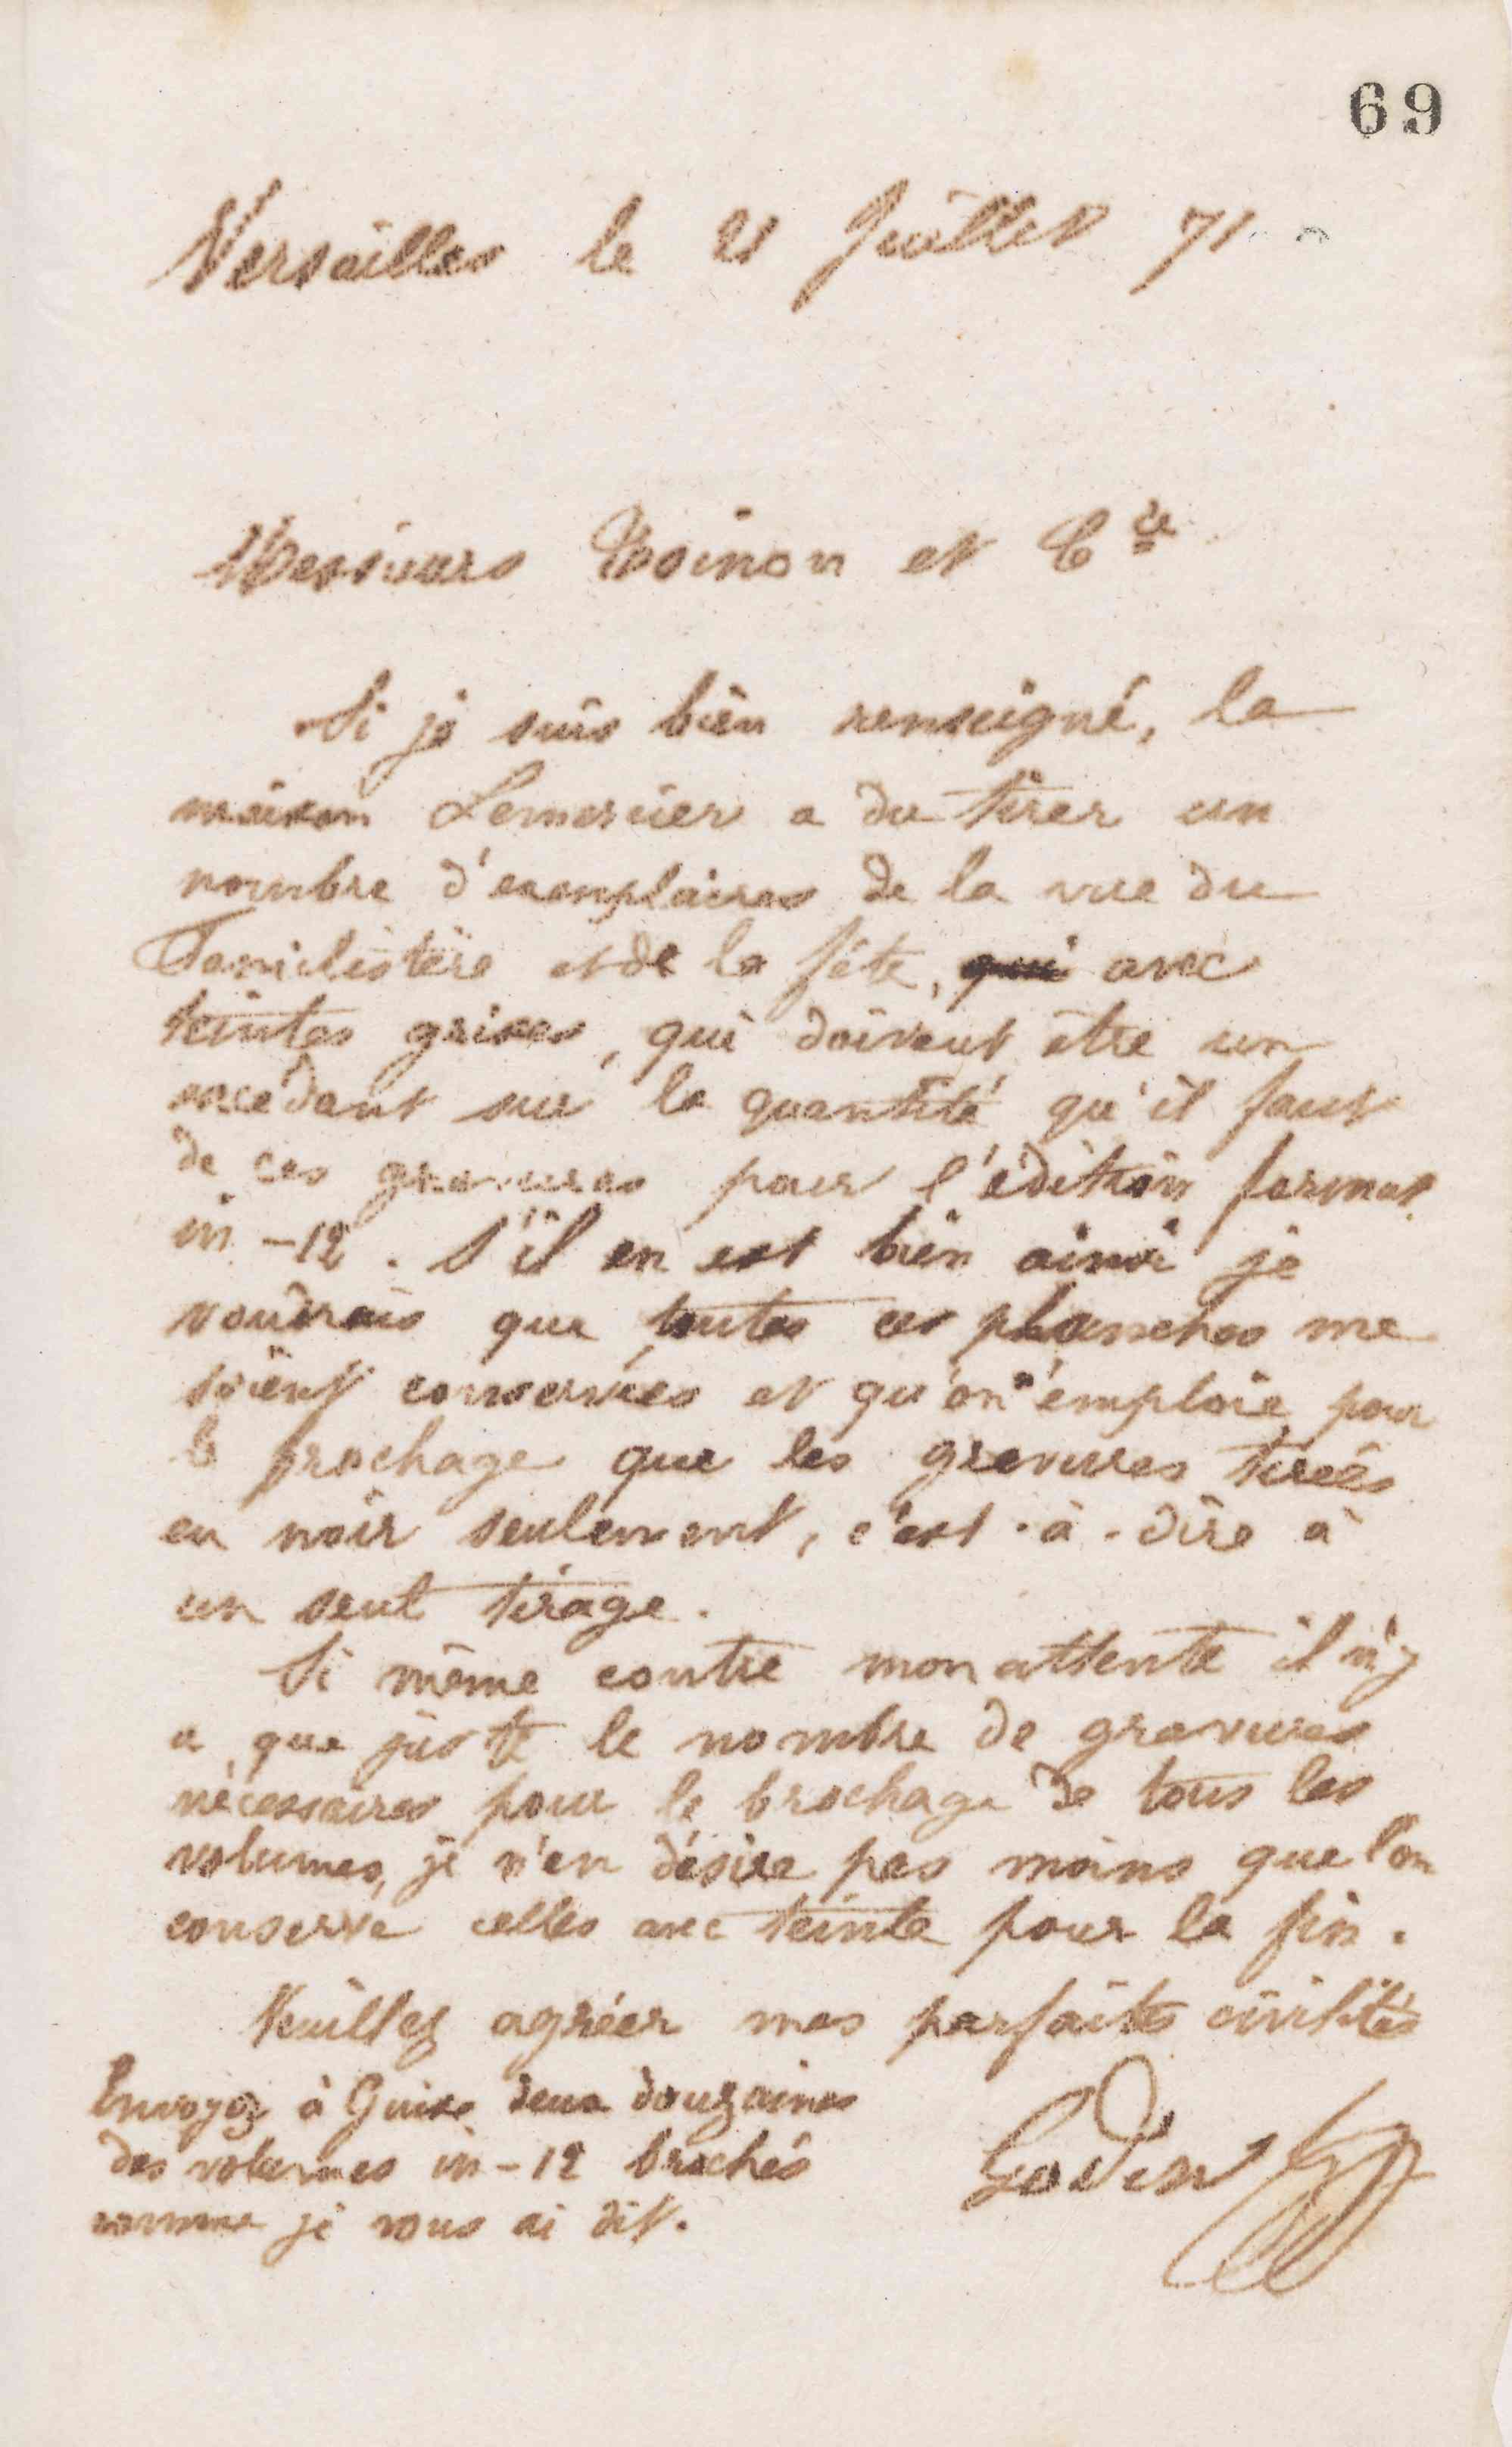 69
Versailles le 21 Juillet 71
Messieurs Toinon et Cie
Si je suis bien renseigné, la
maison Lemercier a du tirer un
nombre d'exemplaires de la vue du
Familistère et de la fête, qui avec
teintes grises, qui doivent être un
excédant sur la quantité qu'il faut
de ces gravures pour l'édition format
in-12. S'il en est bien ainsi je
voudrais que toutes ces planches me
soient conservées et qu'on n'emploie pour
le brochage que les gravures tirées
en noir seulement, c'est-à-dire à
un seul tirage.
Si même contre mon attente il n'y
a que juste le nombre de gravures
nécessaires pour le brochage de tous les
volumes, je n'en désire pas moins que l'on
conserve celles avec teinte pour la fin.
Veuillez agréer mes parfaites civilités
Envoyez à Guise deux douzaines
des volumes in-12 brochés
comme je vous ai dit.
Godin